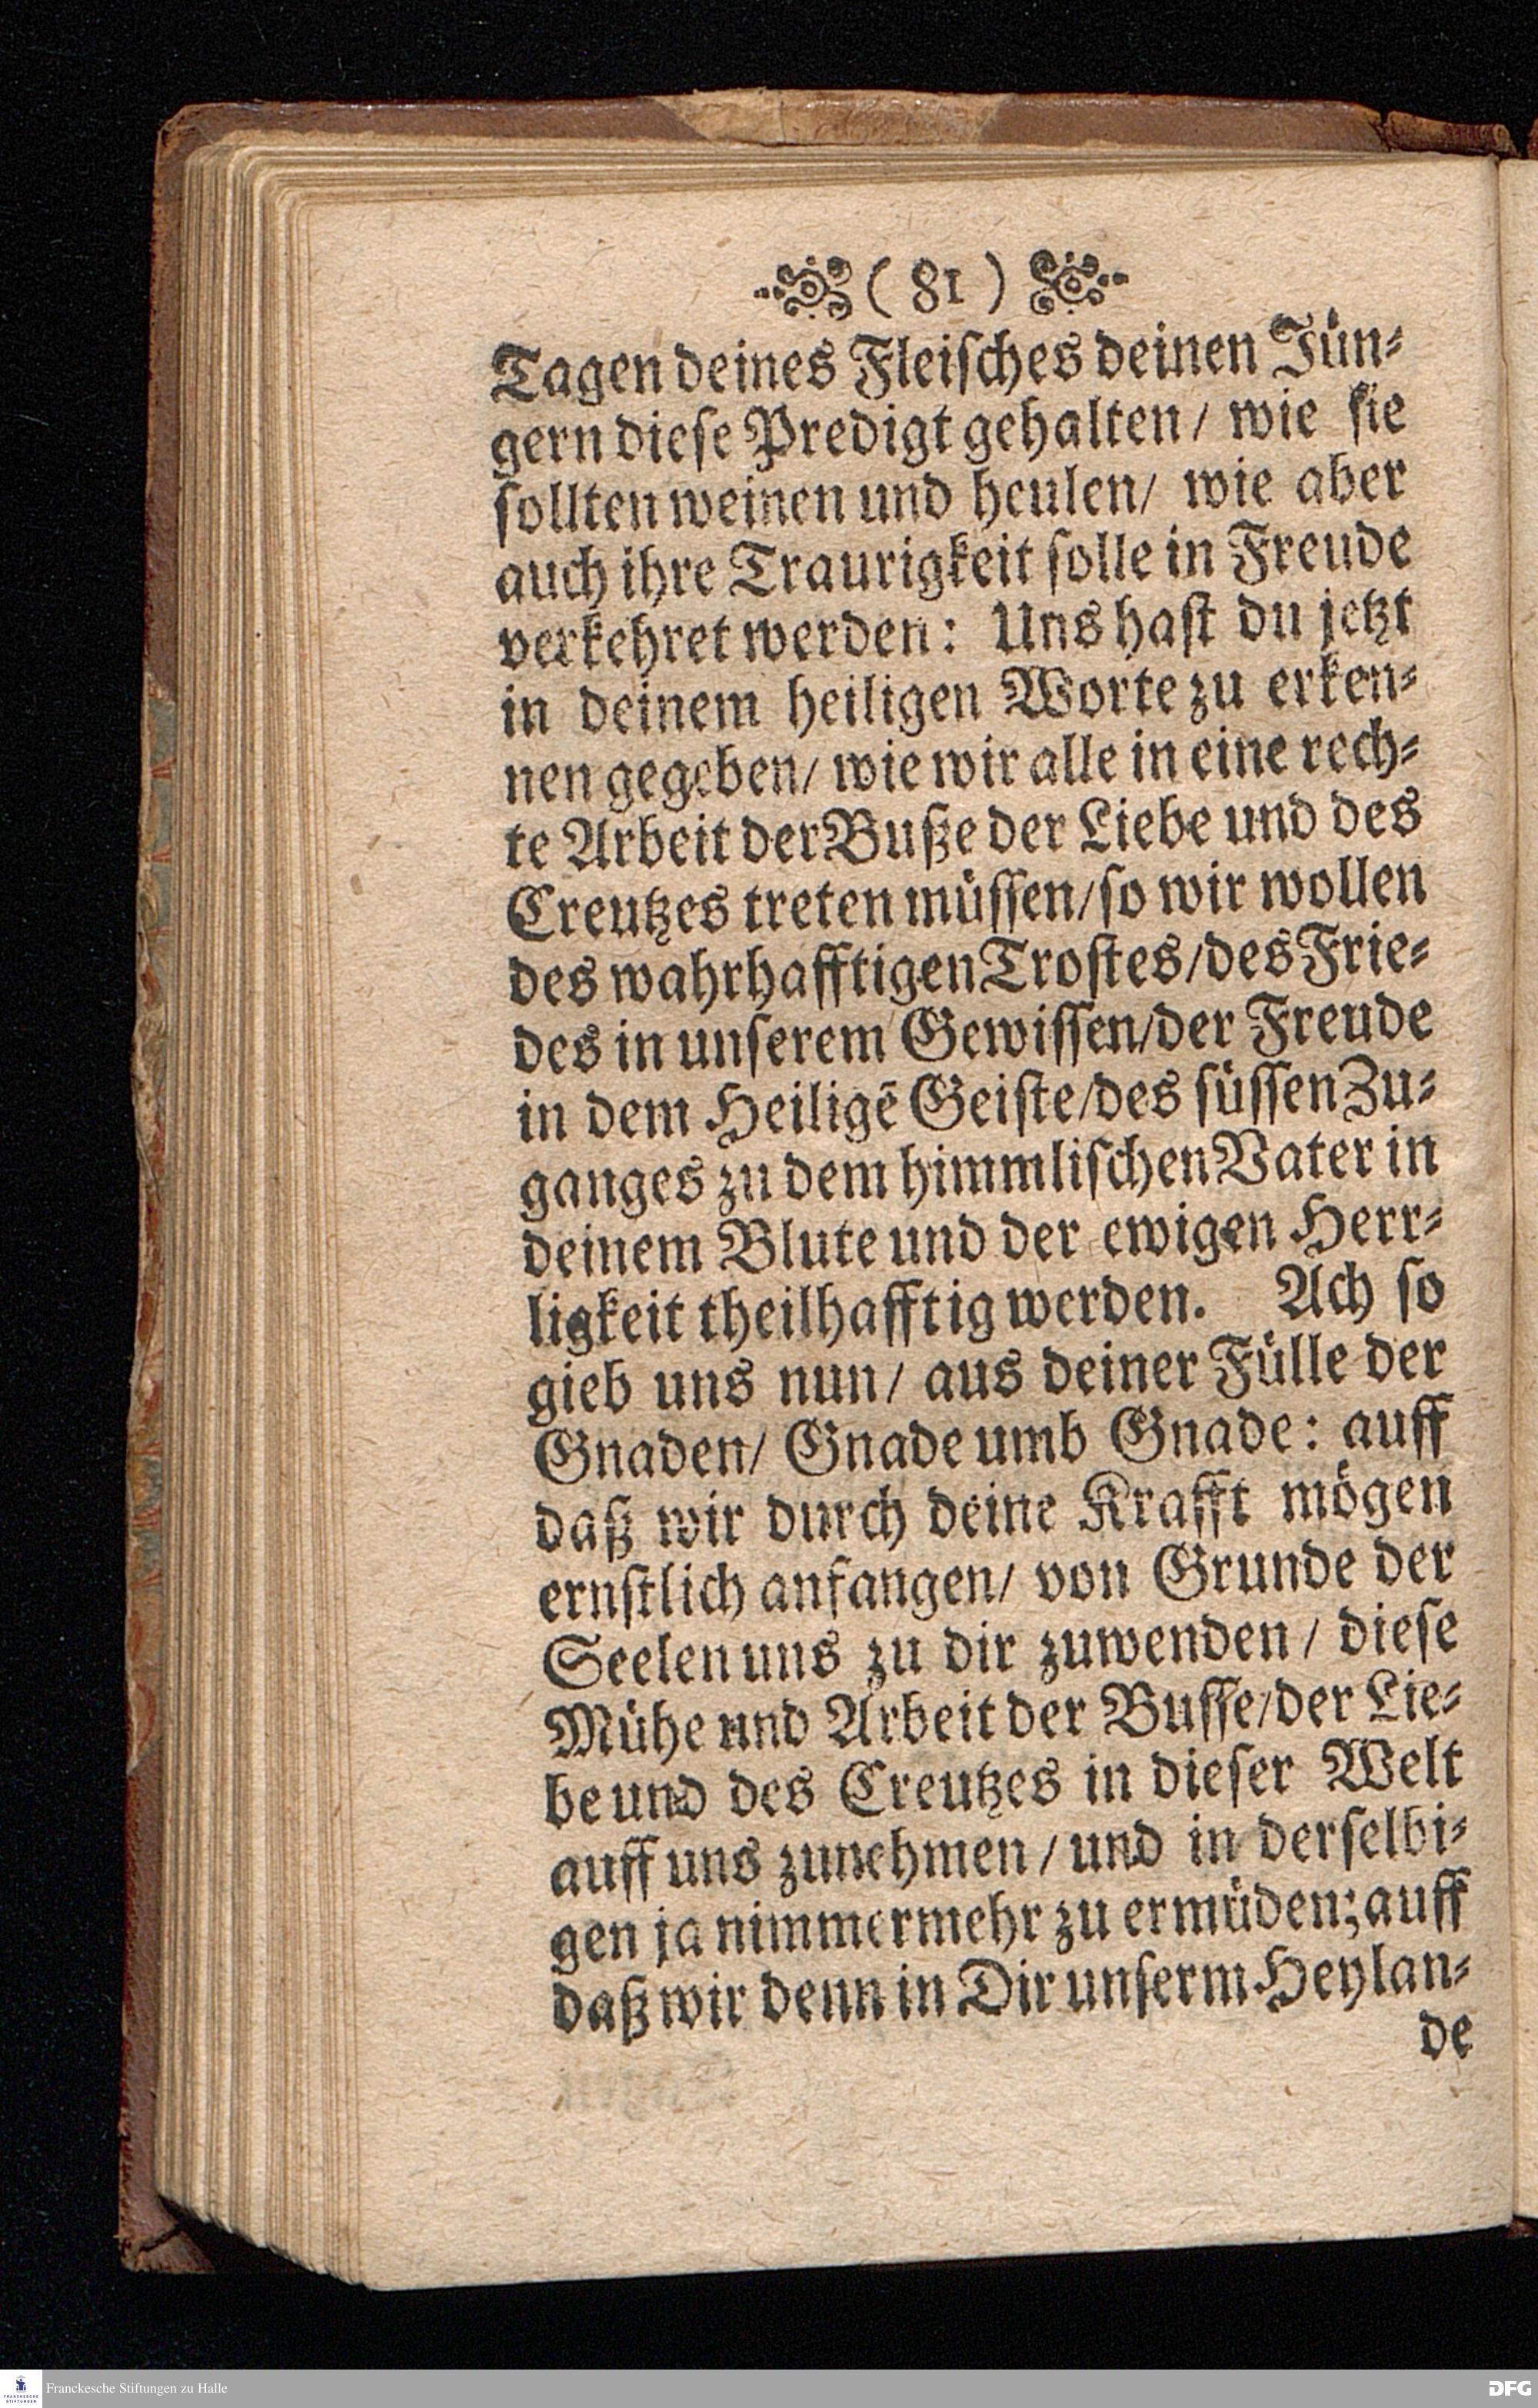 ( 81 )
Tagen deines Fleiſches deinen Jün⸗
gern dieſe Predigt gehalten / wie ſie
ſollten weinen und heulen / wie aber
auch ihre Traurigkeit ſolle in Freude
verkehret werden: Uns haſt du jetzt
in deinem heiligen Worte zu erken⸗
nen gegeben / wie wir alle in eine rech⸗
te Arbeit der Buße der Liebe und des
Creutzes treten müſſen / ſo wir wollen
des wahrhafftigen Troſtes / des Frie⸗
des in unſerem Gewiſſen / der Freude
in dem Heiligē Geiſte / des ſüſſen Zu⸗
ganges zu dem himmliſchen Vater in
deinem Blute und der ewigen Herr⸗
ligkeit theilhafftig werden. Ach ſo
gieb uns nun / aus deiner Fülle der
Gnaden / Gnade umb Gnade: auff
daß wir durch deine Krafft mögen
ernſtlich anfangen / von Grunde der
Seelen uns zu dir zuwenden / dieſe
Mühe und Arbeit der Buſſe / der Lie⸗
be und des Creutzes in dieſer Welt
auff uns zunehmen / und in derſelbi⸗
gen ja nimmermehr zu ermüden; auff
daß wir denn in Dir unſerm Heylan⸗
de
Franckesche Stiftungen zu Halle
FRANCKESCHE
STIFTUNGEN
DFG